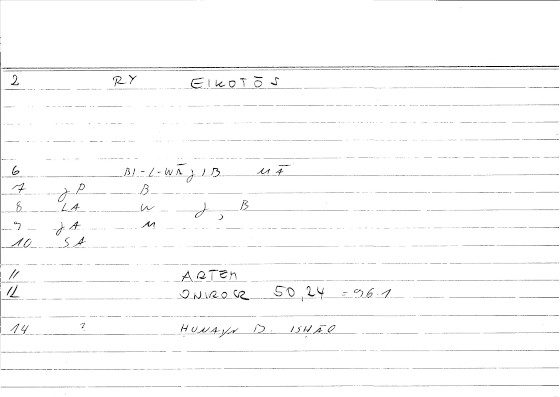 2 RY EIKOTŌS
6 BI-L-WĀǧIB MĀ
7 ǧP B
8 LA W ǧ, B
9 ǧA M
10 SA
11 ARTEM
12 ONIROCR 50,24 = 96.1
14 ? HUNAYN B. ISHĀQ